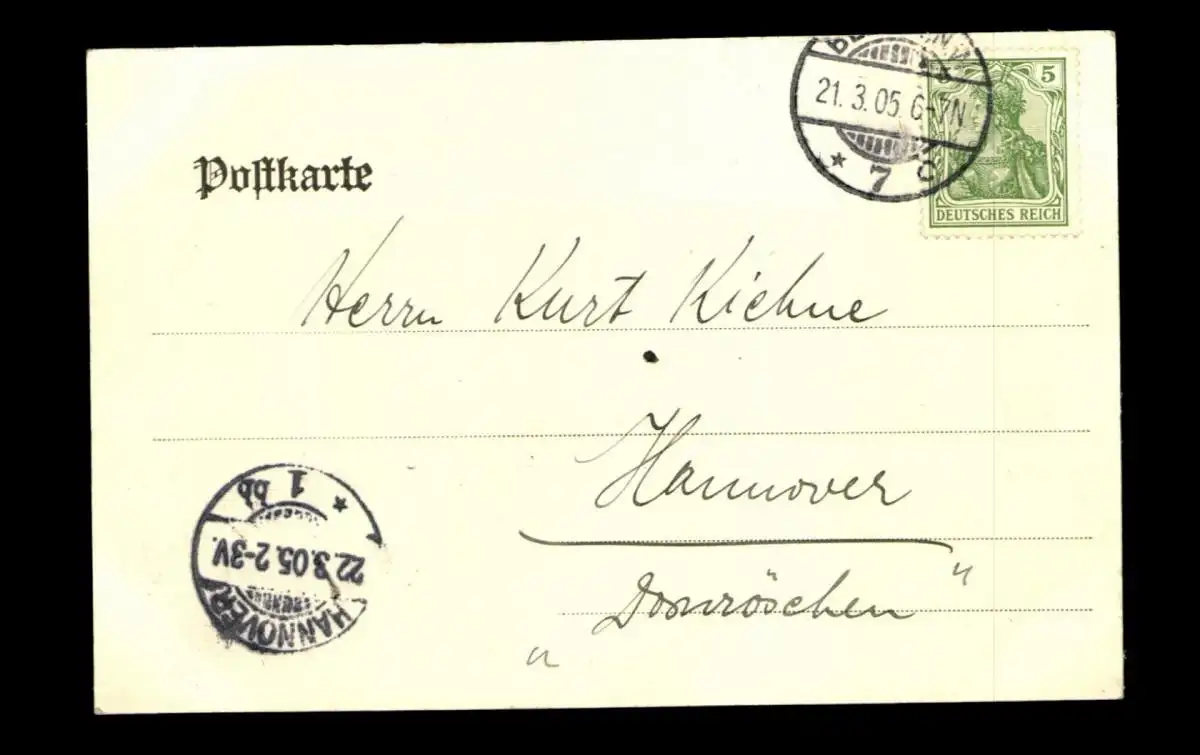 Postkarte
21. 3. 05. 6-7N
* 7 c
5 5
DEUTSCHES REICH
Herrn Kurt Kiehne
Hannover
„Dornröschen"
HANNOVER
22.3.05.2-3V.
* 1 bb